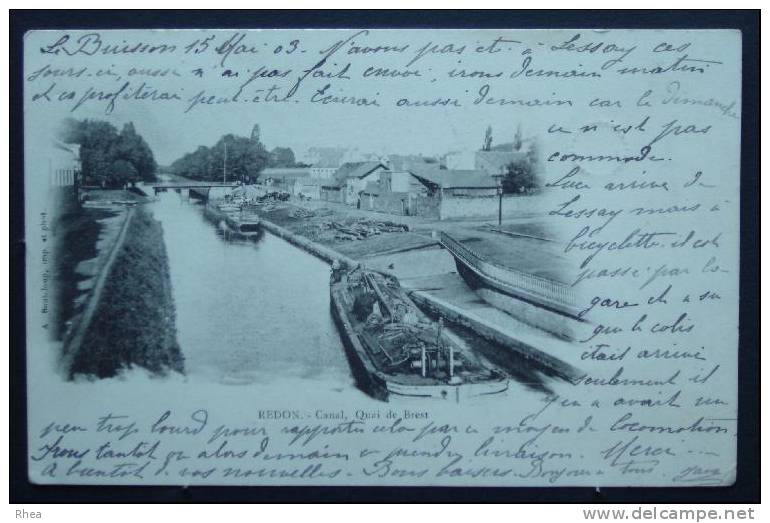 Le Buisson 15 Mai 03. N'avons pas eté à Lessay ces
jours-ci, aussi n'ai pas fait envoi, irons demain matin
et ça profiterai peut-être. Ecrirai aussi demain car le Dimanche
ce n'est pas
commode.
Luce arrive de
Lessay mais pas à
bicyclette. il est
passé par la
gare et a su
que le colis
était arrivé
seulement il
y en a avait un
peu trop lourd pour rapporter cela par ce moyen de locomotion.
Irons tantot ou alors demain en prendre livraison. Merci ...
A bientot de vos nouvelles. Bons baisers. Bonjour à tous.
REDON. - Canal, Quai de Brest
imp. et phot.
Rhea
http://www.delcampe.net